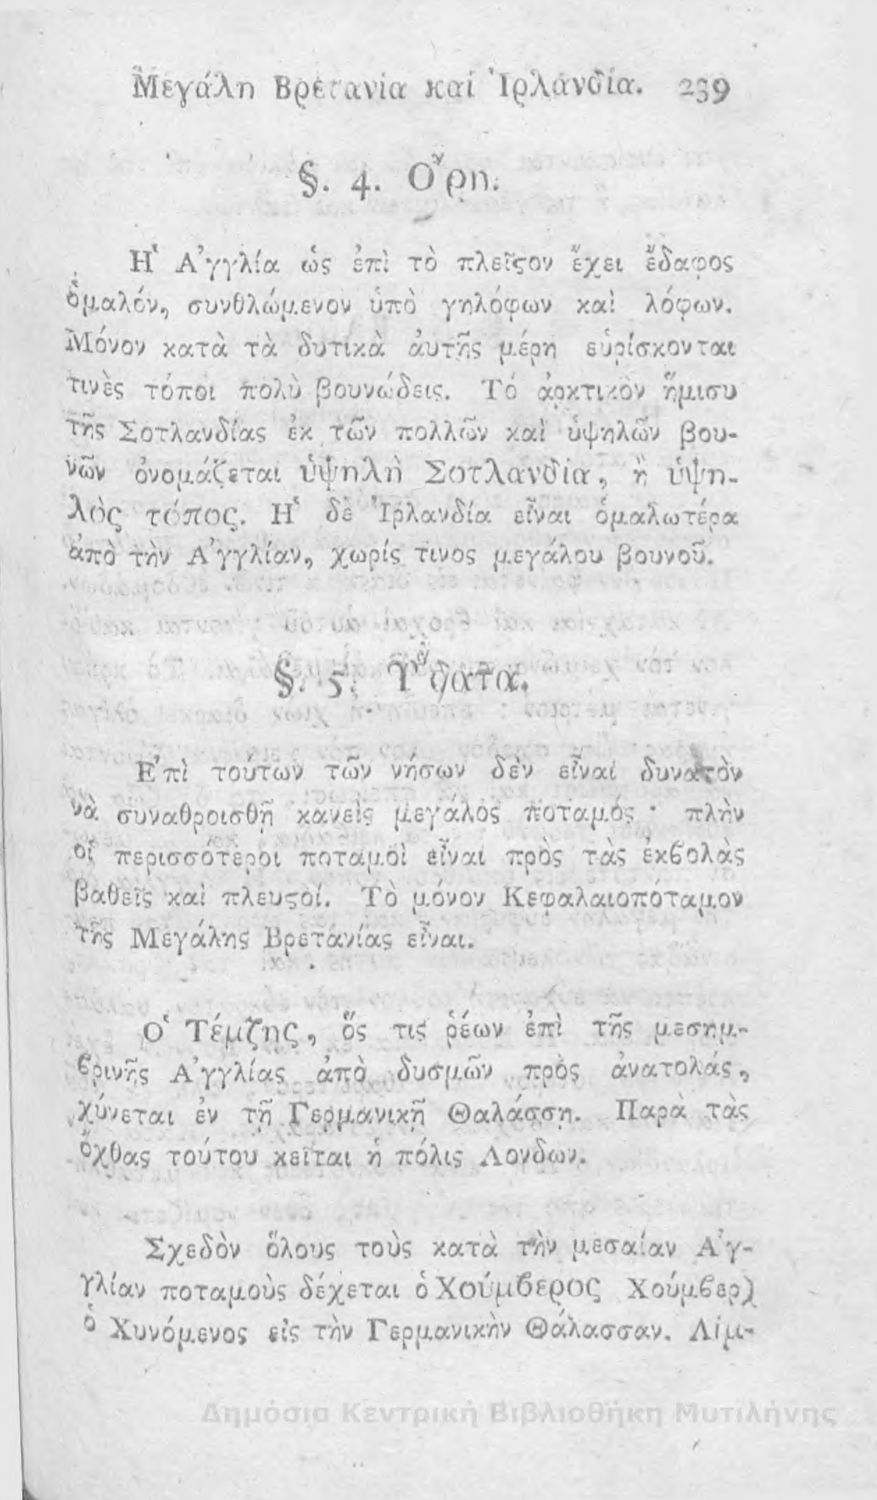 Μεγάλη Βρετανία καὶ Ἰρλανδία. 239
§. 4. Ὄρη.
Ἡ Ἀγγλία ὡς ἐπὶ τὸ πλεῖϛον ἔχει ἔδαφος
ὁμαλόν, συνθλώμενον ὑπὸ γηλόφων καὶ λόφων.
Μόνον κατὰ τὰ δυτικὰ ἀυτῆς μέρη εὑρίσκονται
τινὲς τόποι πολὺ βουνώδεις. Τό ἀρκτικὸν ἥμισυ
τῆς Σοτλανδίας ἐκ τῶν πολλῶν καὶ ὑψηλῶν βου-
νῶν ὀνομάζεται ὑψηλὴ Σοτλανδία, ἢ ὑψη-
λὸς τόπος. Ἡ δὲ Ἰρλανδία εἶναι ὁμαλωτέρα
ἀπὸ τὴν Ἀγγλίαν, χωρίς τινος μεγάλου βουνοῦ.
§. 5. Ὕδατα.
Ἐπὶ τούτων τῶν νήσων δὲν εἶναι δυνατὸν
νὰ συναθροισθῇ κανεὶς μεγαλος ποταμός · πλὴν
οἱ περισσότεροι ποταμοὶ εἶναι πρὸς τὰς ἐκϐολὰς
βαθεῖς καὶ πλευϛοί. Τὸ μόνον Κεφαλαιοποταμον
τῆς Μεγάλης Βρετανίας εἶναι.
Ὁ Τέμζης, ὅς τις ῥέων ἐπὶ τῆς μεσημ-
ϐρινῆς Ἀγγλίας ἀπὸ δυσμῶν πρὸς ἀνατολάς,
χύνεται ἐν τῇ Γερμανικῇ Θαλάσσῃ. Παρὰ τὰς
ὄχθας τούτου κεῖται ἡ πόλις Λονδων.
Σχεδὸν ὅλους τοὺς κατὰ τὴν μεσαίαν Ἀγ-
γλίαν ποταμοὺς δέχεται ὁ Χούμϐερος Χούμϐερ)
ὁ Χυνόμενος εἰς τὴν Γερμανικὴν Θάλασσαν. Λίμ-
Δημόσια Κεντρική Βιβλιοθήκη Μυτιλήνης